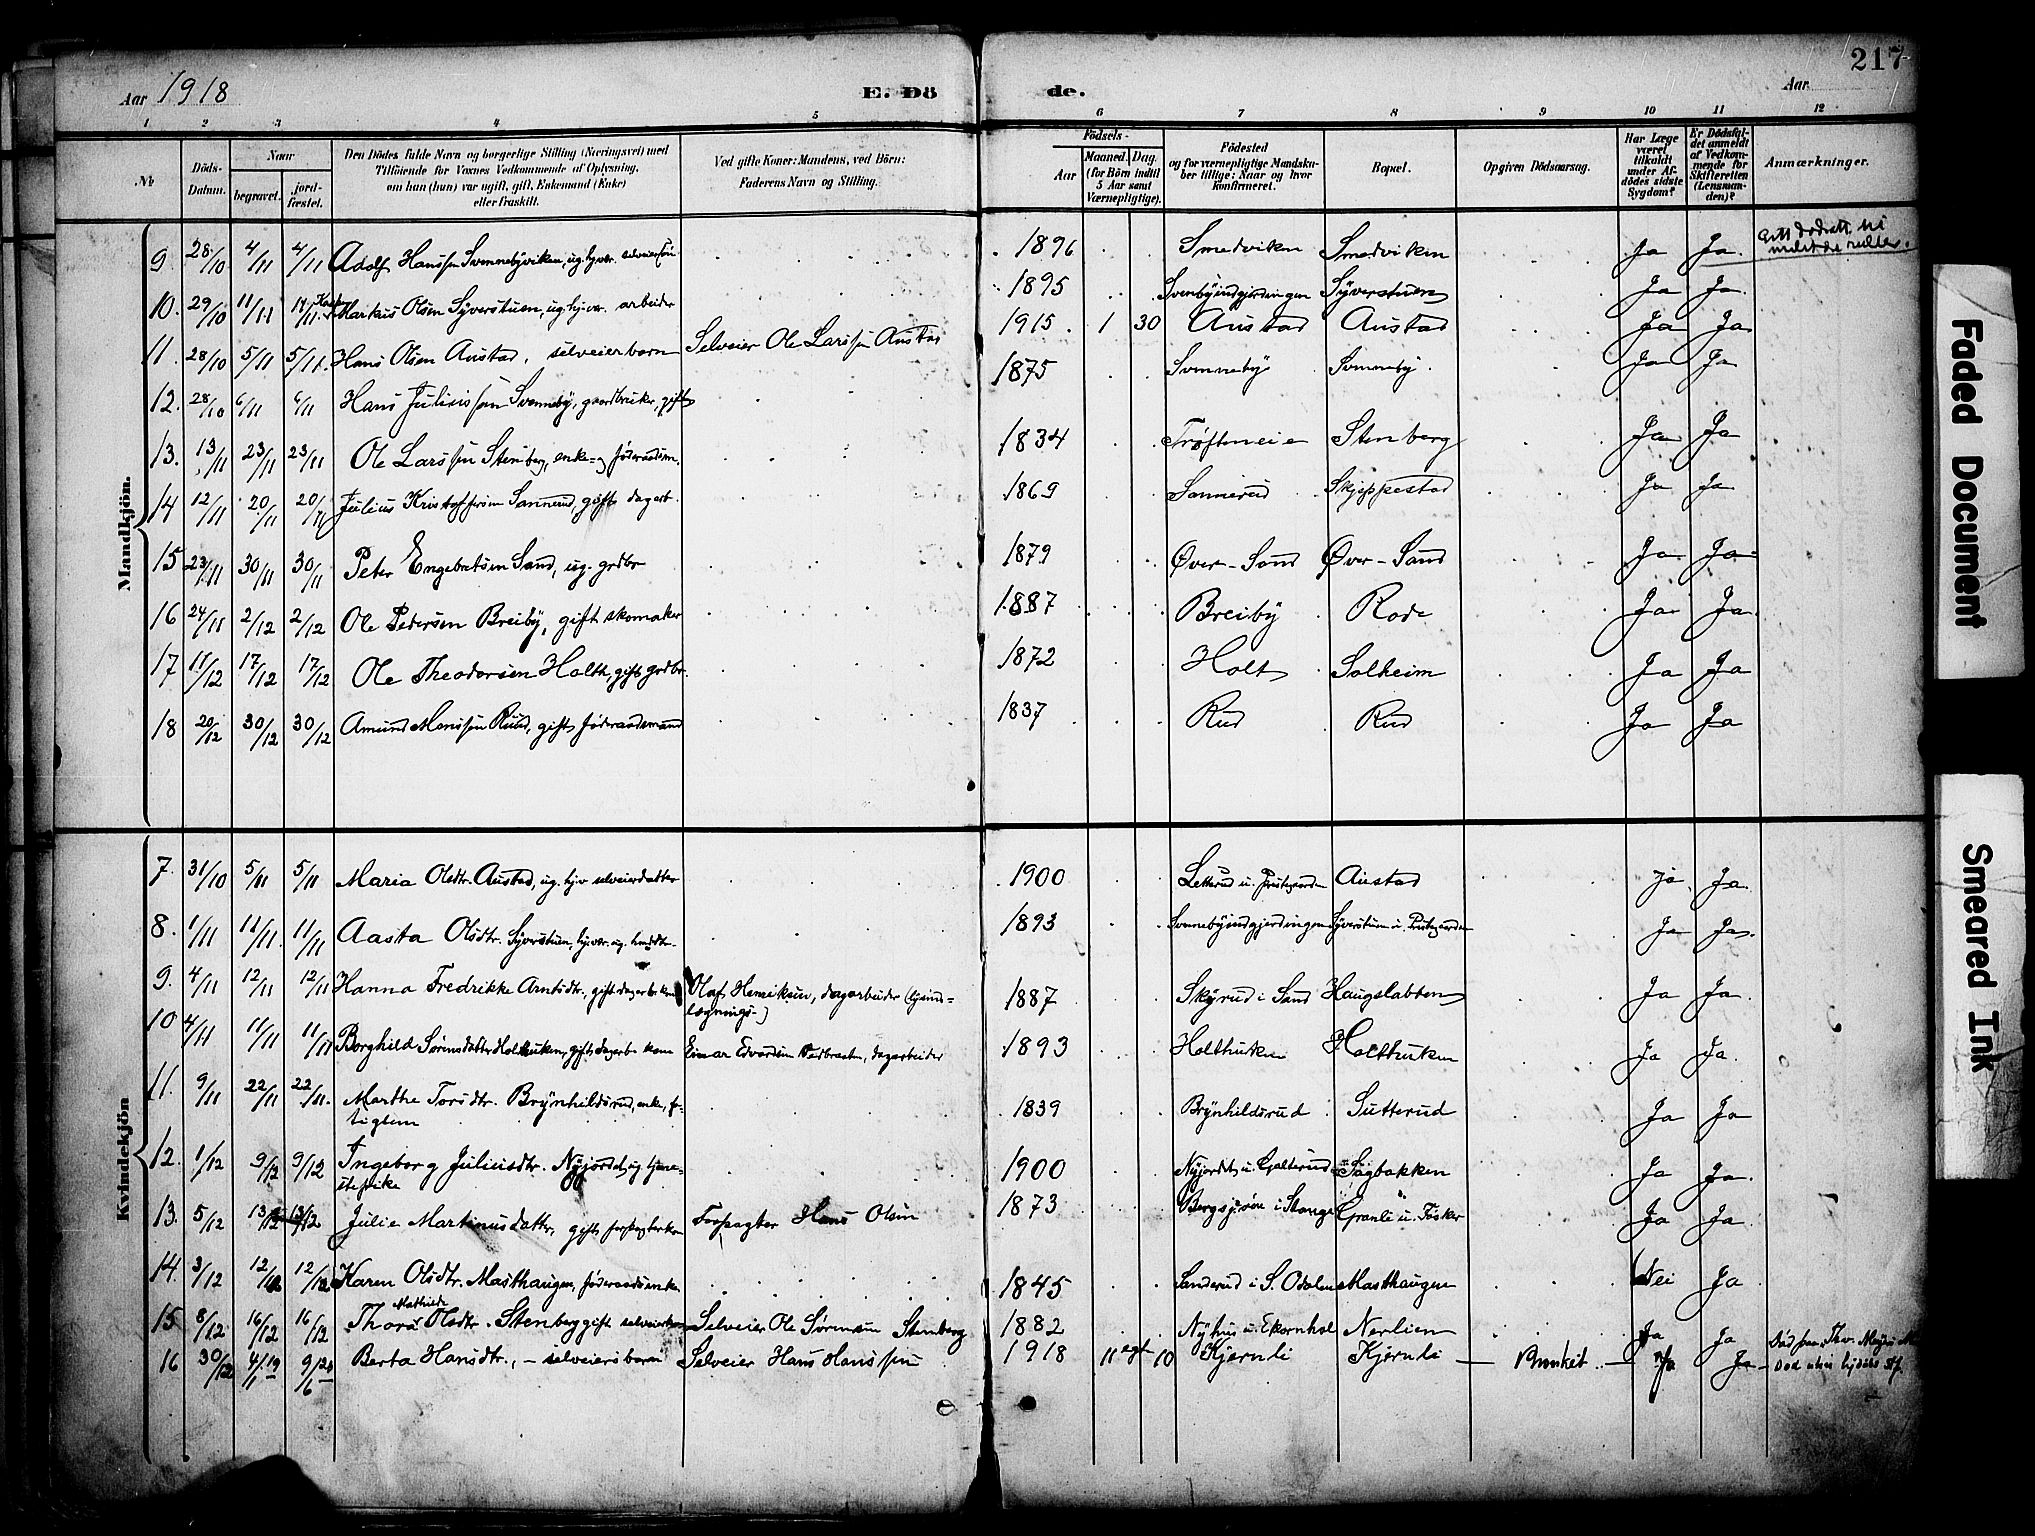 217
Aar 1918 E. Dö de. Aar
1 2 3 4 5 6 7 8 9 10 11 12
No
Döds-Datum.
Naar
begravet.
jord-fæstet.
Den Dödes fulde Navn og borgerlige Stilling (Næringsvei) med
Tilföiende for Voxnes Vedkommende af Oplysning,
om han (hun) var ugift, gift, Enkemand (Enke)
eller fraskilt.
Ved gifte Koner: Mandens, ved Börn:
Faderens Navn og Stilling.
Födsels-
Aar
Maaned. Dag.
(for Börn indtil
5 Aar samt
Værnepligtige).
Födested
og for værnepligtige Mandska-
ber tillige: Naar og hvor
konfirmeret.
Bopæl.
Opgiven Dödsaarsag.
Har Læge
været
tilkaldt
under Af-
dödes sidste
Sygdom?
Er Dödsfal-
det anmeldt
af Vedkom-
mende for
Skifteretten
(Lensman-
den)?
Anmærkninger.
Mandkjön.
9 28/10 4/11 4/11 Adolf Hanssen Svennebyviken, ug. hjver. selveiersøn 1896 Smedviken Smedviken Ja Ja
10. 29/10 11/11 11/11 Markus Olsen Syverstuen, ug. hjver. arbeider 1895 Svenbyindgjerdingen Syverstuen Ja Ja
11. 28/10 5/11 5/11. Hans Olsen Austad, selveierbarn Selveier Ole Larssen Austad 1915 1 30 Austad Austad Ja Ja
12. 28/10 6/11 6/11 Hans Juliussen Svenneby, gaardbruker, gift 1875 Svenneby Svenneby Ja Ja
13. 13/11 23/11 23/11 Ole Larssen Stenberg, enke- og føderaadsm. 1834 Trøftmeie Stenberg Ja Ja
14 12/11 20/11 20/11 Julius Kristoffersen Sannerud, gift dagarb. 1869 Sannerud Skjeppestad Ja Ja
15 23/11 30/11 30/11 Peter Engebretsen Sand, ug. grdbr 1879 Øver-Sand Øver-Sand Ja Ja
16 24/11 2/12 2/12 Ole Pedersen Breiby, gift skomaker 1887 Breiby Rode Ja Ja
17 11/12 17/12 17/12 Ole Theodorsen Holth, gift grdbr. 1872 Holt Solheim Ja Ja
18 20/12 30/12 30/12 Amund Monssen Ruud, gift føderaadsmand 1837 Rud Rud Ja Ja
Kvindekjön
7. 31/10 5/11 5/11 Maria Olsdtr. Austad, ug. hjv selveierdatter 1900 Letterud u. Prestgarden Austad Ja Ja
8. 1/11 11/11. 11/11 Aasta Olsdtr. Syverstuen, hjver. ug. 1893 Svennebyindgjerdingen Syverstuen u. Prestgarden Ja Ja
9. 4/11 12/11 12/11 Hanna Fredrikke Arntsdtr., gift dagarb. kone Olaf Henriksen, dagarbeider 1887 Skyrud i Sand Haugslabben Ja Ja
10 4/11 11/11 11/11 Borghild Sørensdatter Holthuken, gift dagarb. kone Einar Edvardsen, dagarbeider 1893 Holthuken Holthuken Ja Ja
11. 9/11 22/11 22/11. Marthe Torsdtr. Brynhildsrud, enke, fa-
tiglem 1839 Brynhildsrud Sutterud Ja Ja
12. 1/12 9/12 9/12 Ingeborg Juliusdtr. Nyjordet, ug tjene-
stepike 1900 Nyjordet u. Galterud Sagbakken Ja Ja
13. 5/12 13/12 13/12 Julie Martinusdatter, gift forpagterkone Forpagter Hans Olsen 1873 i Stange Granli u. Fosker Ja Ja
14. 3/12 12/12 12/12 Karen Olsdtr. Masthaugen, føderaadsenke 1845 Sanderud i S. Odalen Masthaugen Nei Ja
15 8/12 16/12 16/12 Thora Mathilde Olsdtr. Stenberg gift selveierkone Selveier Ole Sørensen Stenberg 1882 Nyhus u. Ekornhol Nerlien Ja Ja
16 30/12 4/1 19 9/6 20 Berta Hansdtr., – selveiersbarn Selveier Hans Hanssen 1918 11 egt 10 Kjernli Kjernli – – Ja Ja
Faded Document
Smeared Ink